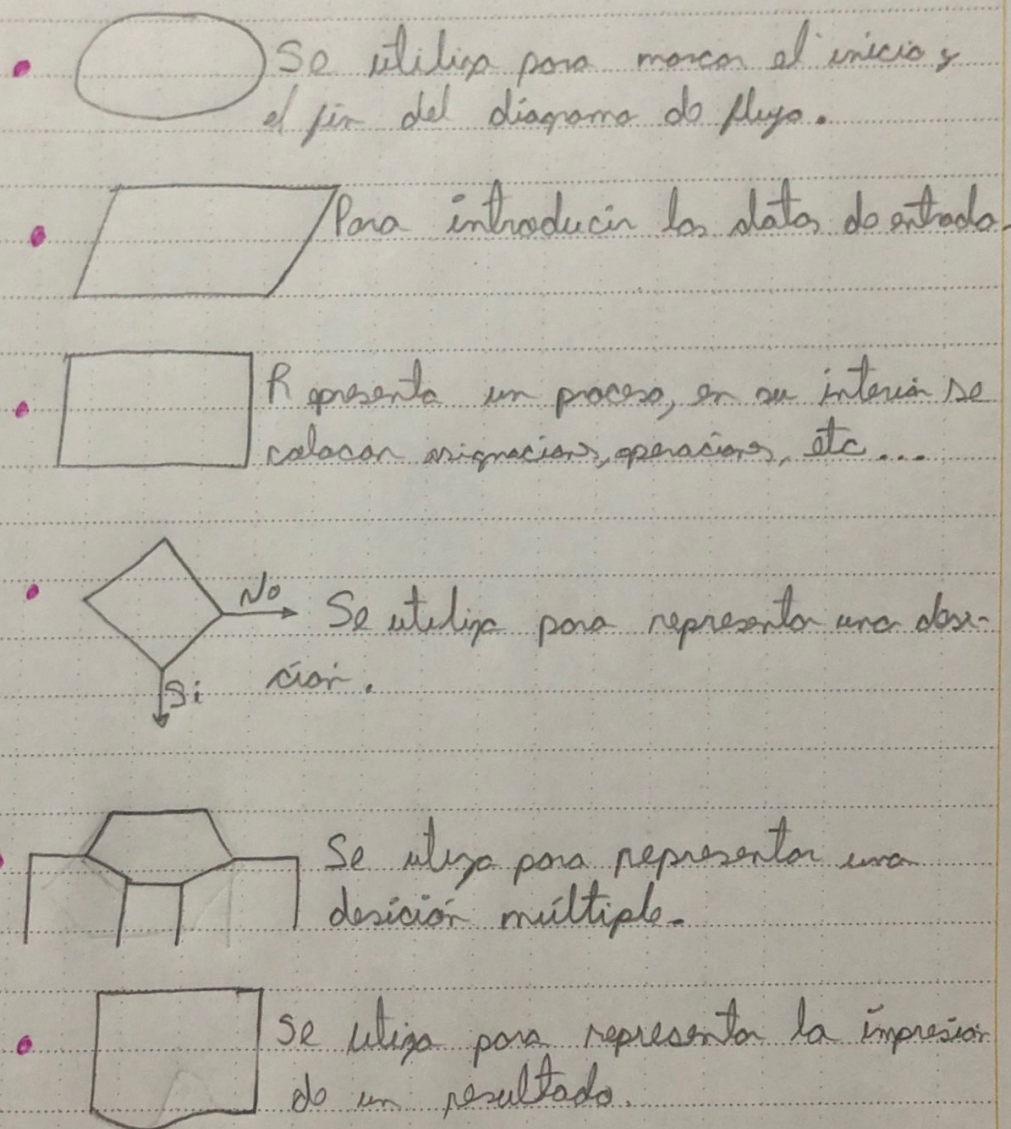 Se utiliza para marcar el inicio y
el fin del diagrama de flujo.
Para introducir los datos de entrada.
Representa un proceso, en su interior se
colocan asignaciones, operaciones, etc...
No
Se utiliza para representar una desi-
ción.
Si
Se utiza para representar una
desición múltiple.
Se utiza para representar la impresión
de un resultado.